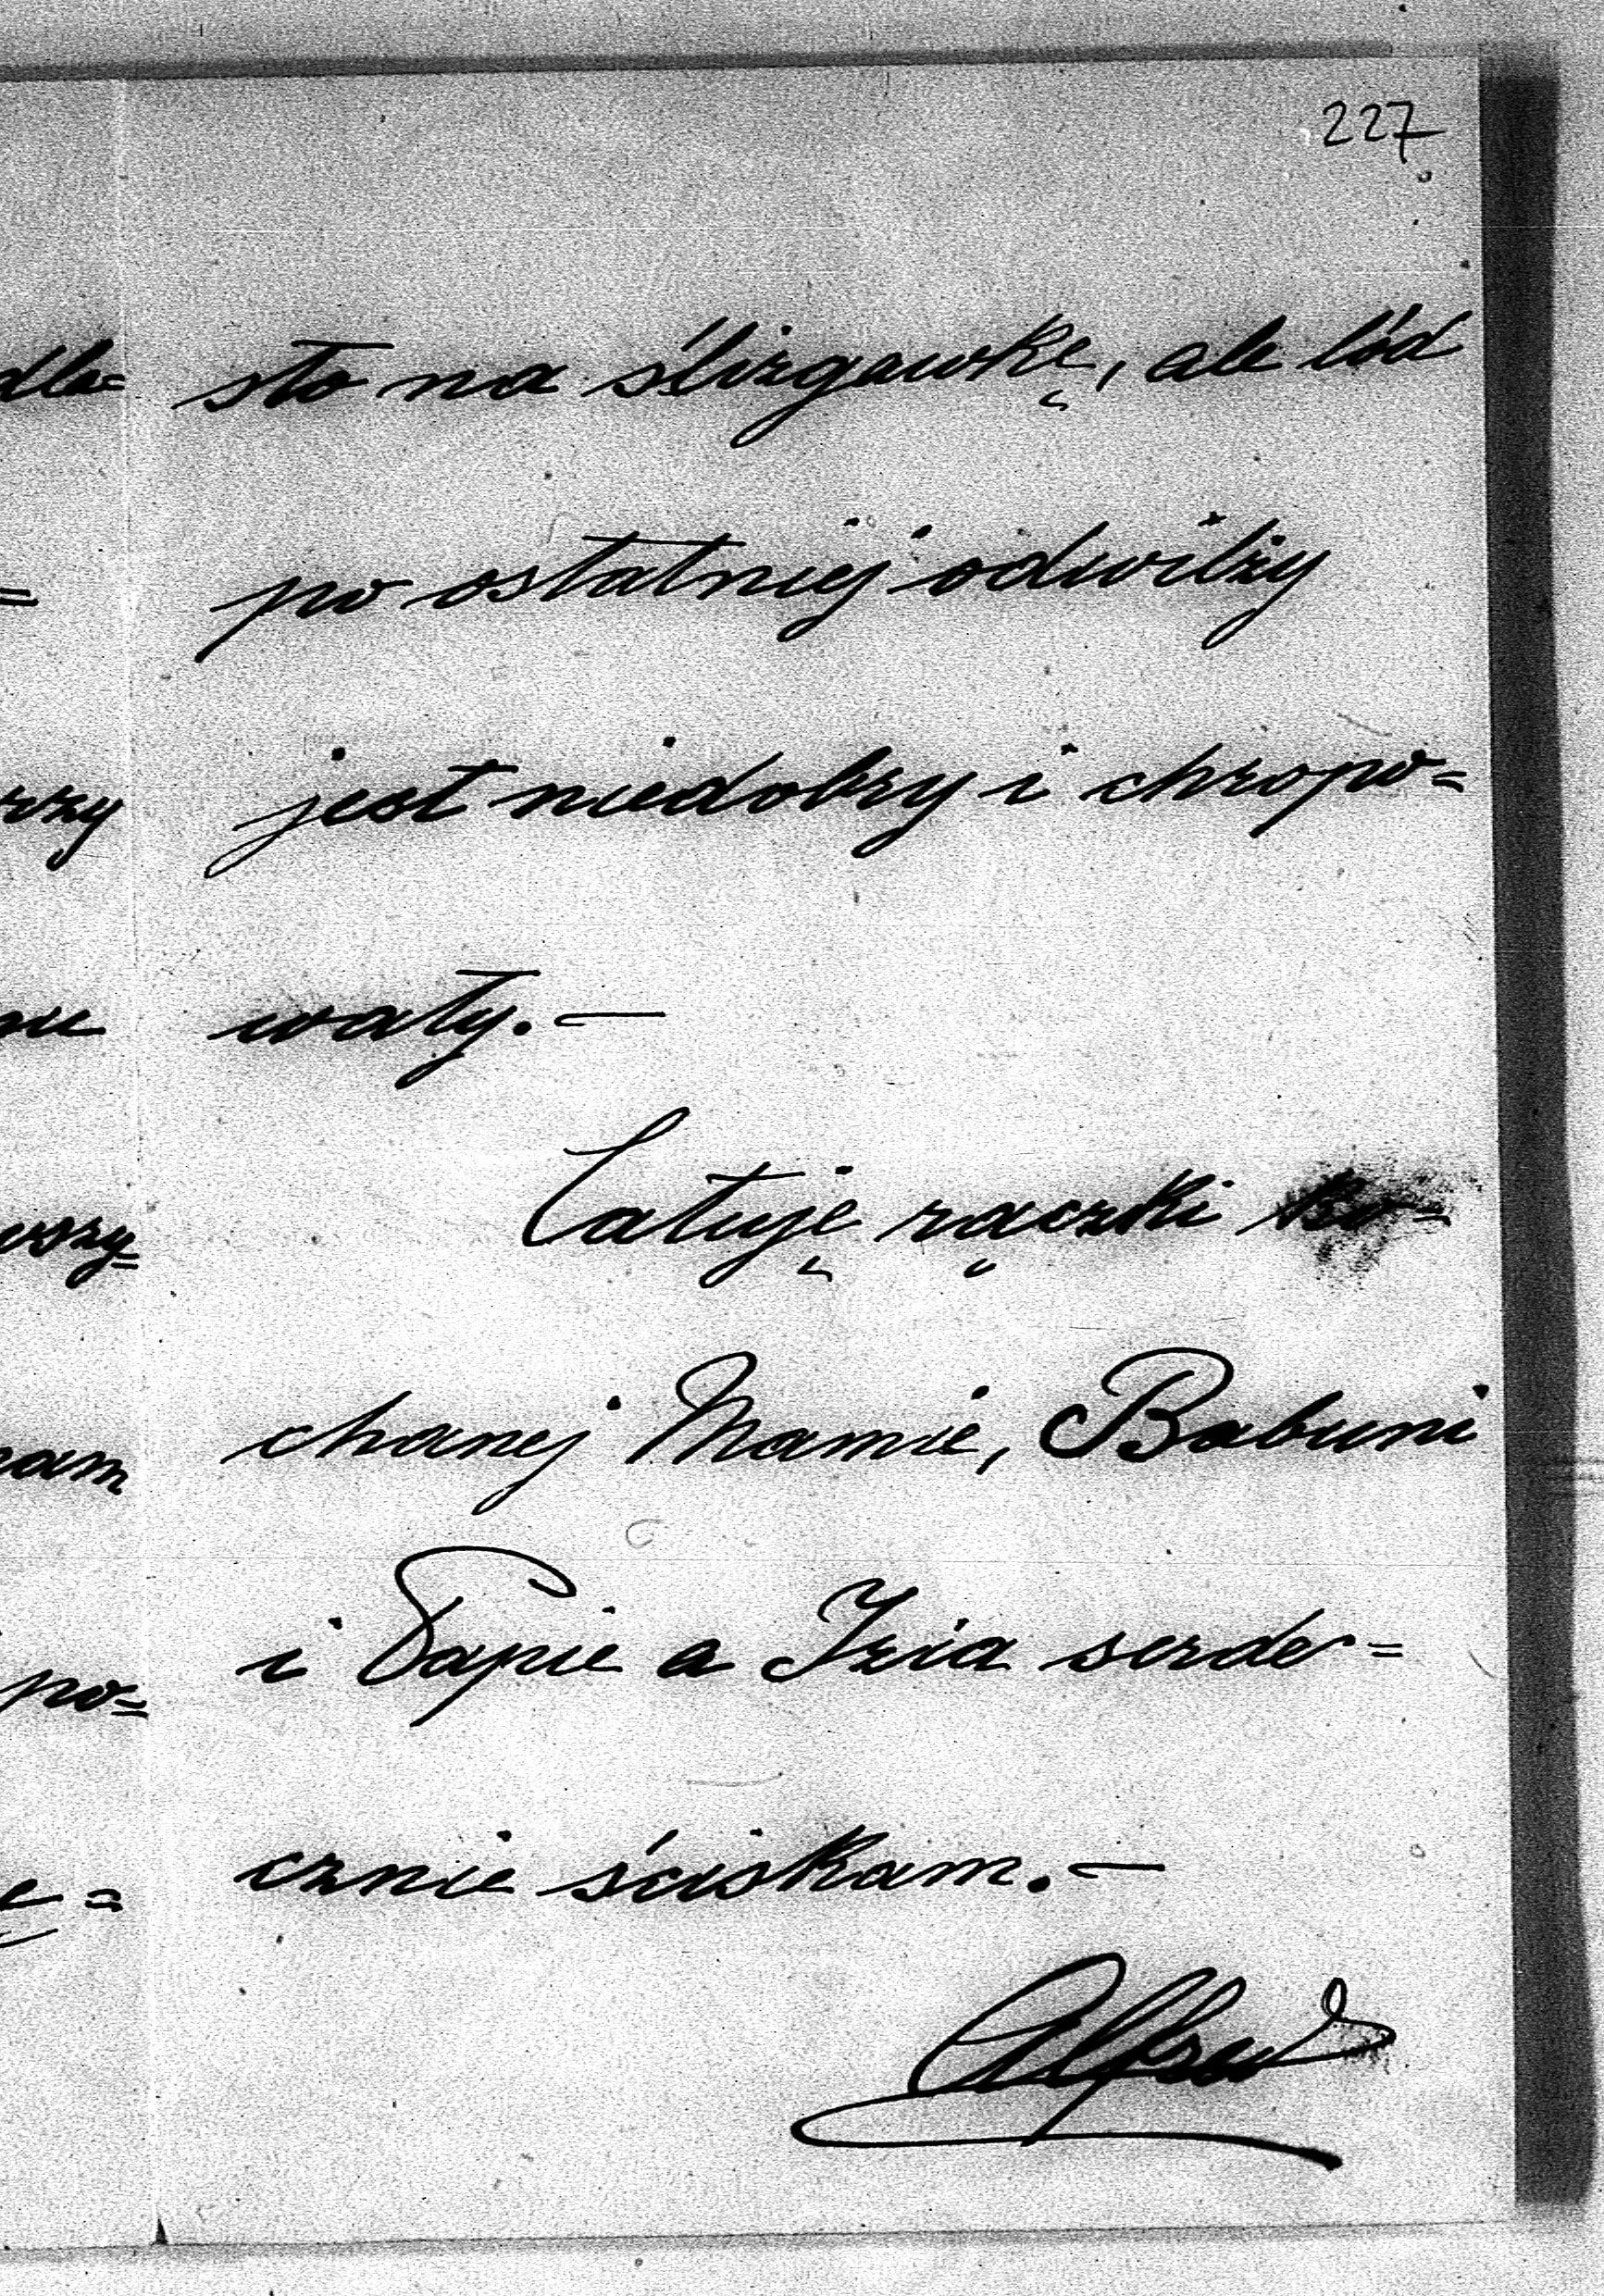 227
sto na ślizgawkę, ale lód
po ostatniej odwilży
jest niedobry i chropo=
waty. —
Całuję rączki ko=
chanej Mamie, Babuni
i Papie a Izia serde=
cznie ściskam. —
Alfred